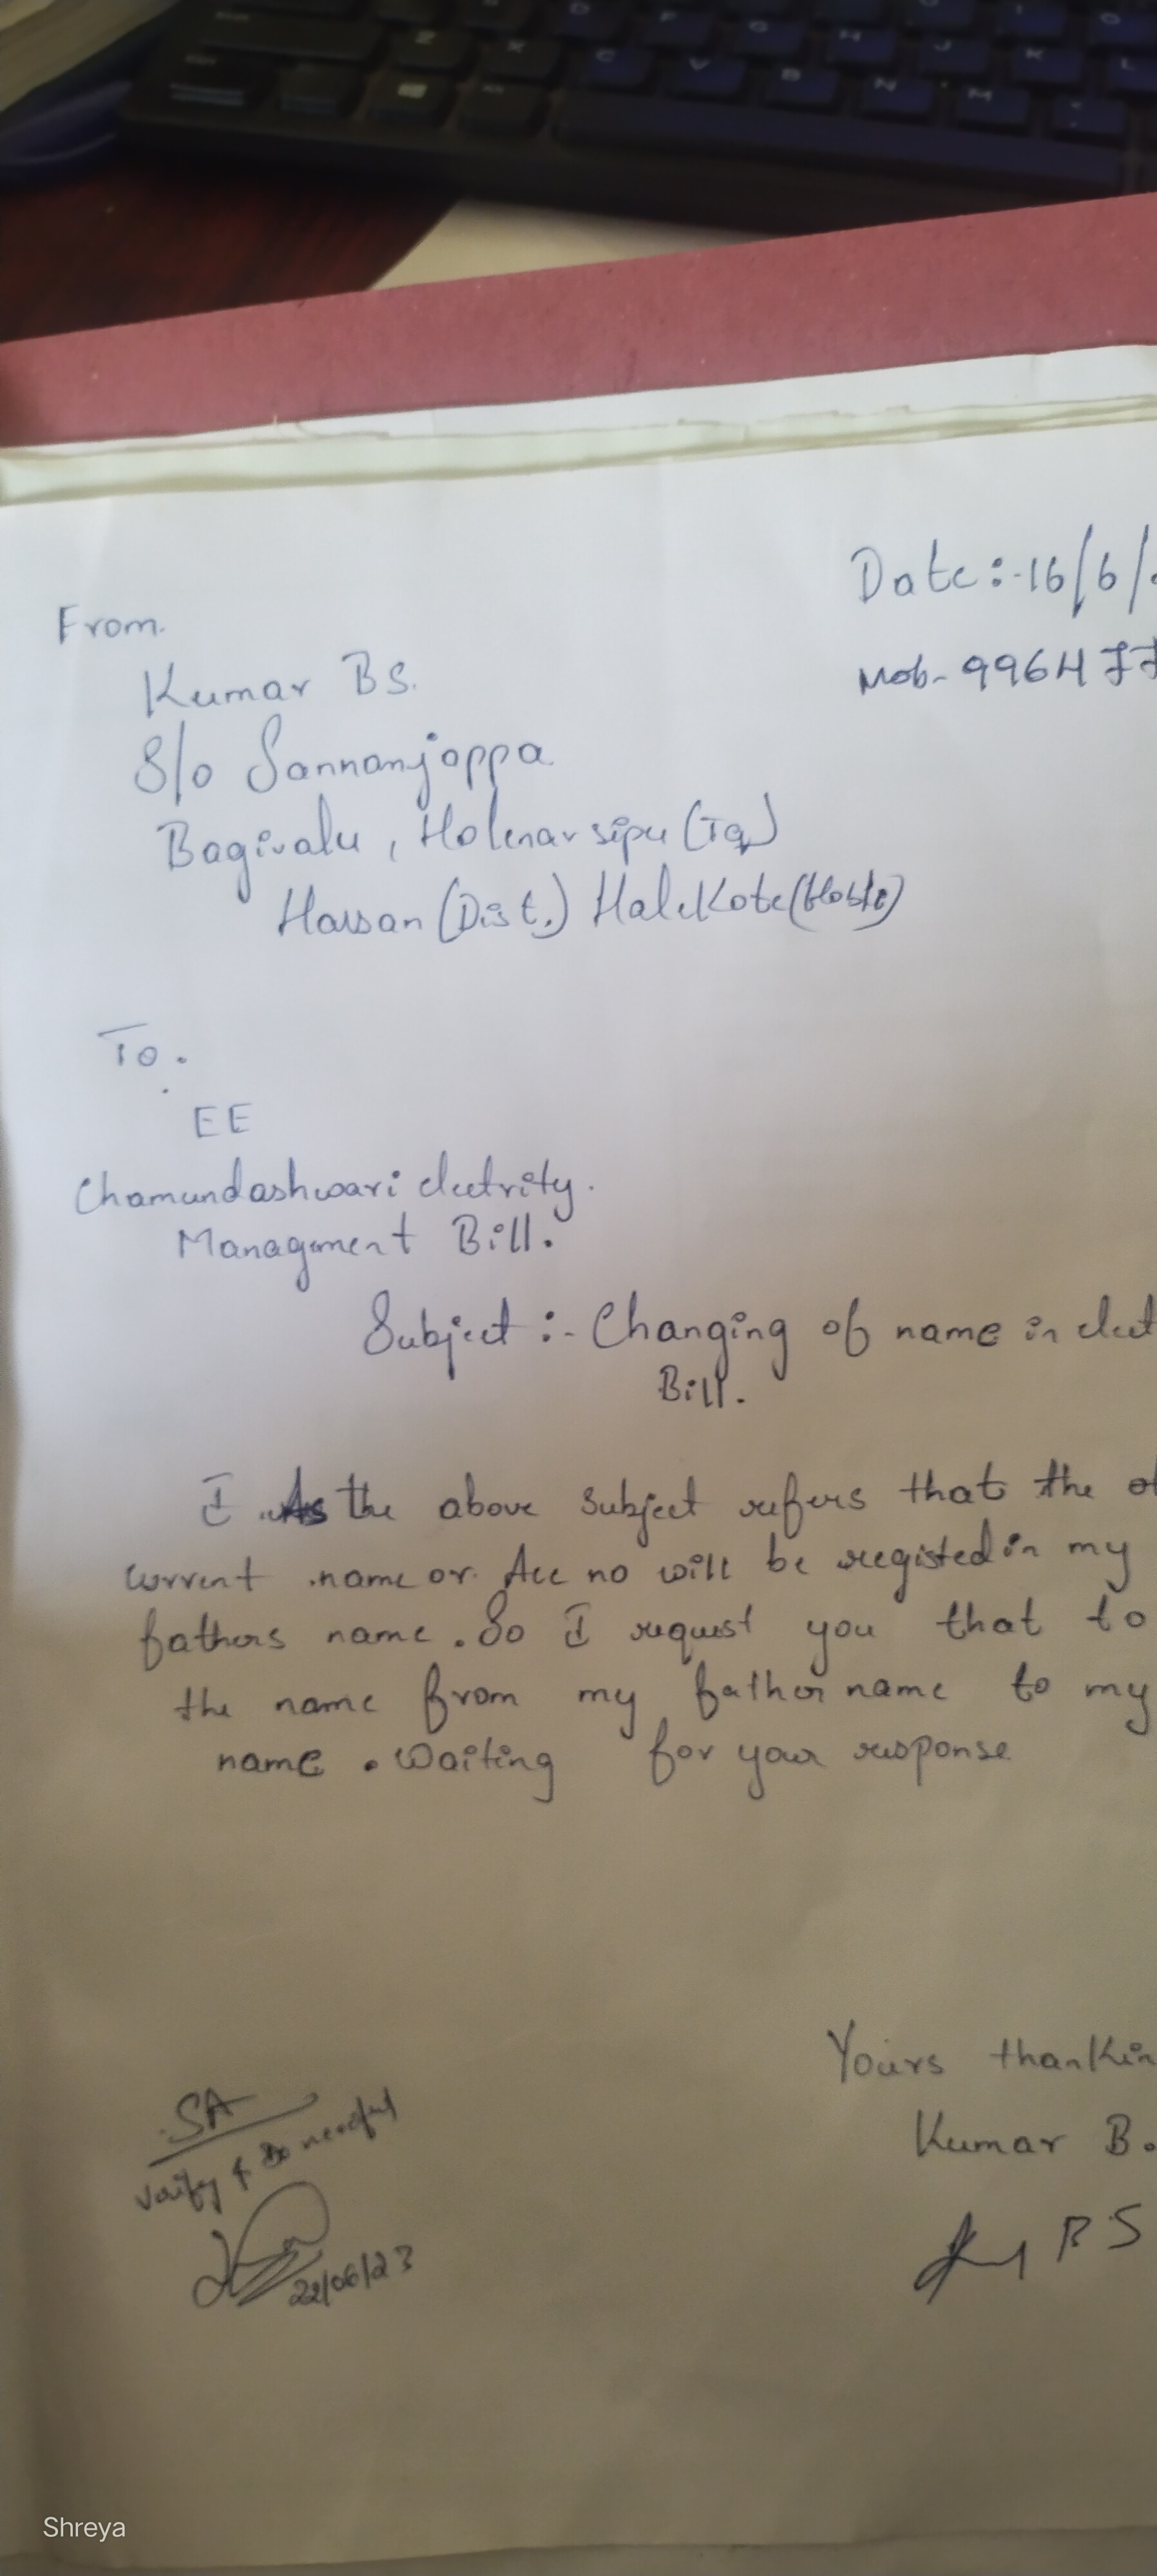 Date:-16/6/
From.
Mob- 9964
Kumar BS.
S/o Sannanjappa
Bagivalu, Holenarsipu (Tq)
Hassan (Dist.) HaleKote (Hobli)
To.
EE
Chamundashwari electrity.
Managment Bill.
Subject :- Changing of name in elect
Bill.
I As the above subject refers that the
current name or Acc no will be registed in my
fathers name. So I request you that to
the name from my father name to my
name. Waiting for your response
Yours thankin
Kumar B.
BS
SA
verify & do needful
22/06/23
Shreya